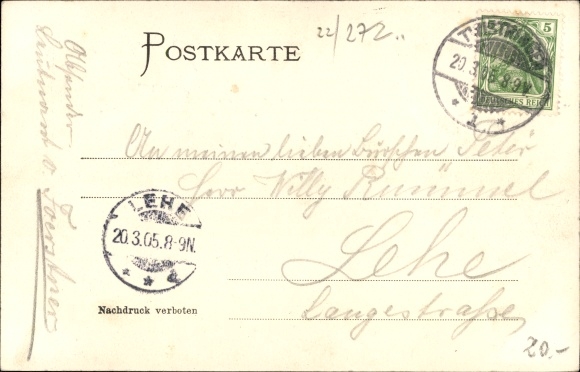 22/272..
POSTKARTE
5
20.3.05.8-9N.
DEUTSCHES REICH
1
Absender
Leutnant v. Foerstner
An meinen lieben Burschen Peter
Herr Willy Rummel
LEHE
20.3.05.8-9N.
Lehe
Langestraße
Nachdruck verboten
20.-